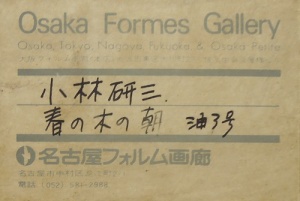 Osaka Formes Gallery
Osaka, Tokyo, Nagoya, Fukuoka & Osaka Perre
小林研三.
春の木の朝 油3号
名古屋フォルム画廊
名古屋市中村区
電話 (052)